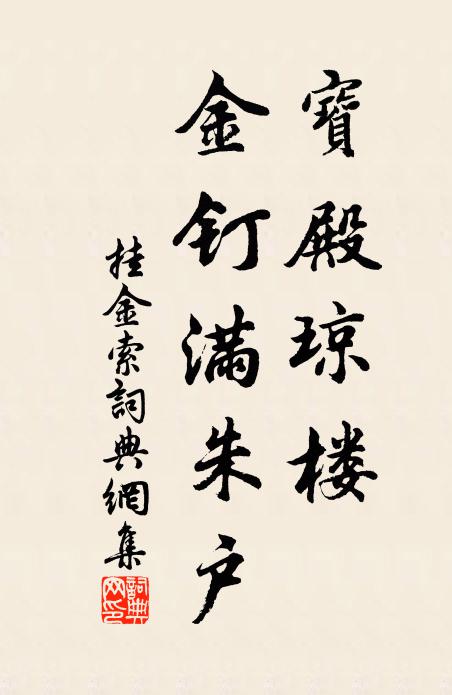 寶殿琼楼
金钉满朱户
挂金索詞典網集
詞典网印